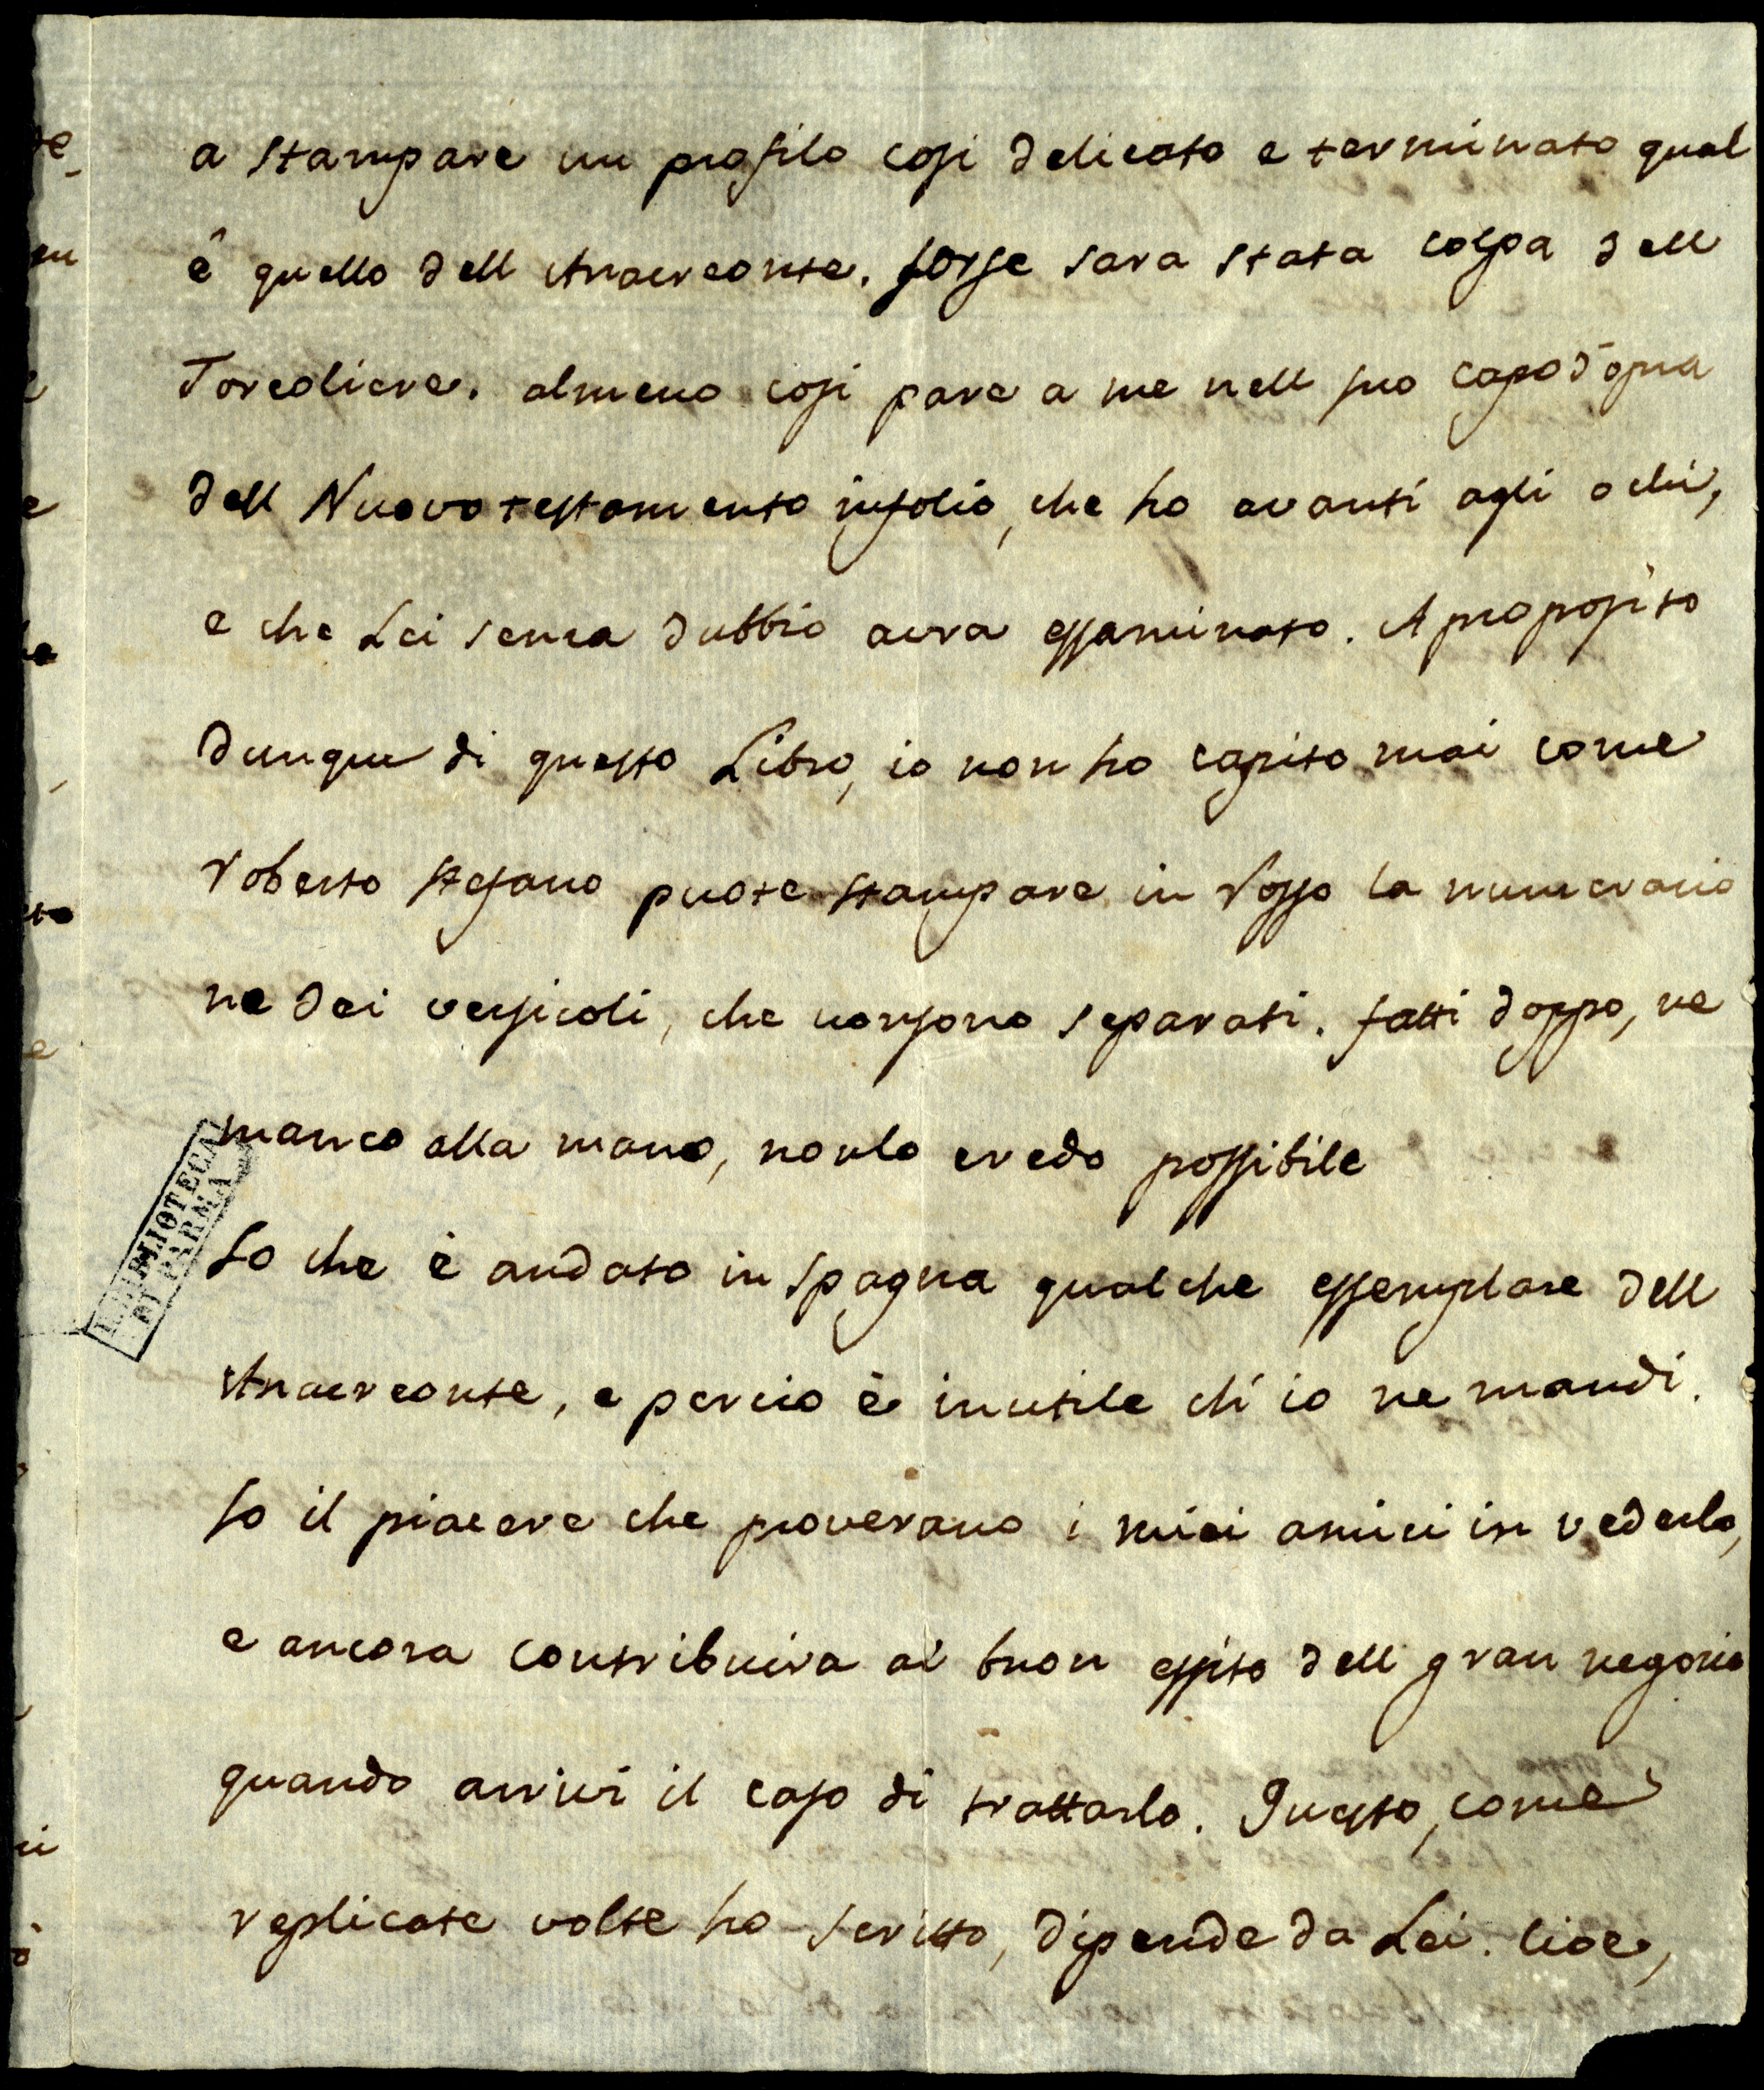 a stampare un profilo cosi delicato e terminato qual
è quello dell Anacreonte. forse sara stata colpa dell
Torcoliere. almeno cosi pare a me nell suo capo d'opra
dell Nuovo testamento infolio, che ho avanti agli ochi,
e che Lei senza dubbio avra essaminato. A proposito
dunque di questo Libro, io non ho capito mai come
Roberto stefano puote stampare in Rosso la numerazio
ne dei versicoli, che non sono separati. fatti doppo, ne
manco alla mano, non lo credo possibile
So che è andato in Spagna qualche essemplare dell
Anacreonte, e percio è inutile ch'io ne mandi.
so il piacere che proverano i miei amici in vederlo,
e ancora contribuira al buon essito dell gran negozio
quando arrivi il caso di trattarlo. Questo, come
replicate volte ho scritto, dipende da Lei. cioe,
R. BIBLIOTECA
DI PARMA